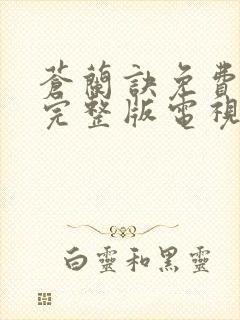 蒼蘭訣免費
完整版電視
白靈和黑靈